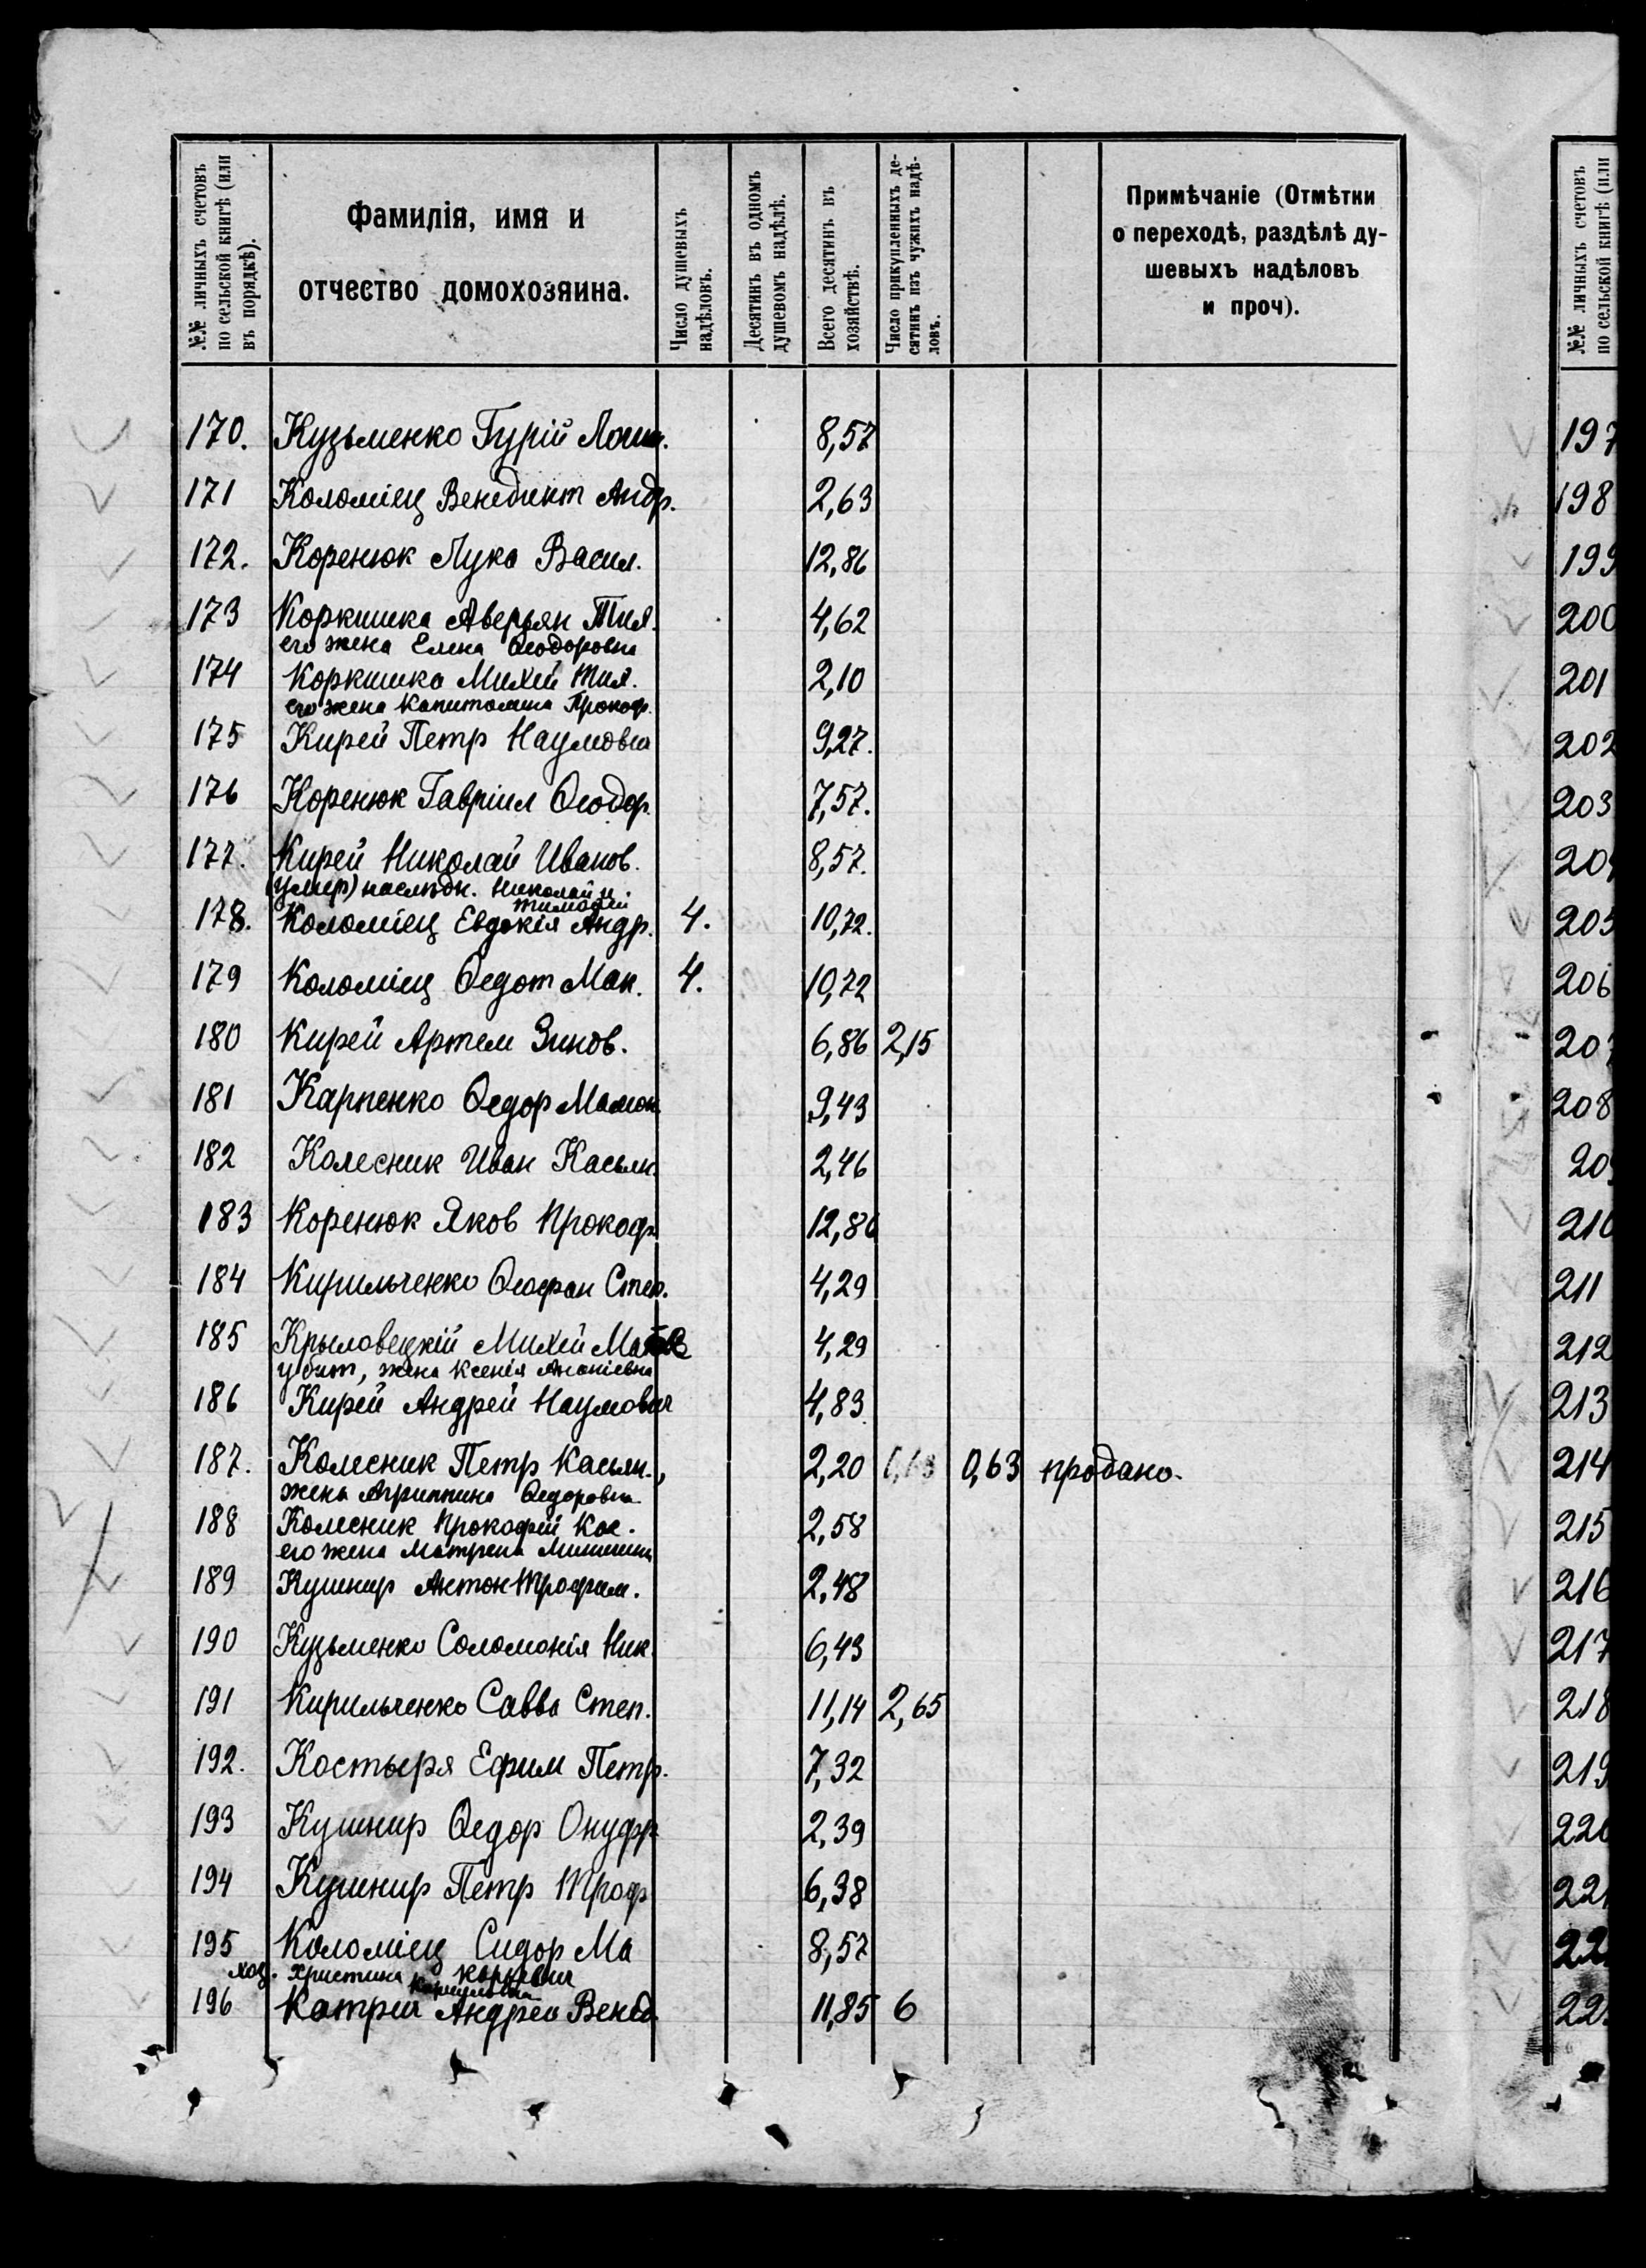 №№ личныхъ счетовъ по сельской книгѣ (или въ порядкѣ).
Фамилія, имя и отчество домохозяина.
Число душевыхъ надѣловъ.
Десятинъ въ одномъ душевомъ надѣлѣ.
Всего десятинъ въ хозяйствѣ.
Число прикупленныхъ десятинъ изъ чужихъ надѣловъ.
Примѣчаніе (Отмѣтки о переходѣ, раздѣлѣ душевыхъ надѣловъ и проч).
№№ личныхъ счетовъ по сельской книгѣ (или
170. Кузьменко Гурій 8,57
171 Коломіец Венедикт Андр. 2,63
172. Коренюк Лука Васил. 12,86
173 Коркишка Аверьян 4,62
его жена Елена Ѳеодоровна
174 Коркишка Михей 2,10
его жена Капитолина Прокоф.
175 Кирей Петр Наумович 9,27.
176 Коренюк Гавріил Ѳеодор. 7,57.
177. Кирей Николай Иванов. 8,57.
(умер) наслѣдн. Николай и
Тимофей
178. Коломіец Евдокія Андр. 4. 10,72.
179 Коломіец Ѳедот Мак. 4. 10,72
180 Кирей Артем Зинов. 6,86 2,15
181 Карпенко Ѳедор Мамон 9,43
182 Колесник Иван Касьян 2,46
183 Коренюк Яков Прокоф 12,86
184 Кирильченко Ѳеофан Степ. 4,29
185 Крыловецкій Михей Матв 4,29
убит, жена Ксенія Ананіевна
186 Кирей Андрей Наумович 4,83
187. Колесник Петр Касьян., 2,20 0,63 0,63 продано.
жена Агриппина Ѳедоровна
188 Колесник Прокофій Кас. 2,58
его жена Матрена
189 Кушнир Антон Трофим. 2,48
190 Кузьменко Соломонія Ник. 6,43
191 Кирильченко Савва Степ. 11,14 2,65
192. Костыря Ефим Петр. 7,32
193 Кушнир Ѳедор Онуфр 2,39
194 Кушнир Петр Троф 6,38
195 Коломіец Сидор Ма 8,57
хоз. Христина каркович
196 Андрей Венед. 11,85 6
197
198
199
200
201
202
203
20
205
206
207
208
20
210
211
212
213
214
215
216
217
218
219
220
22
22
22